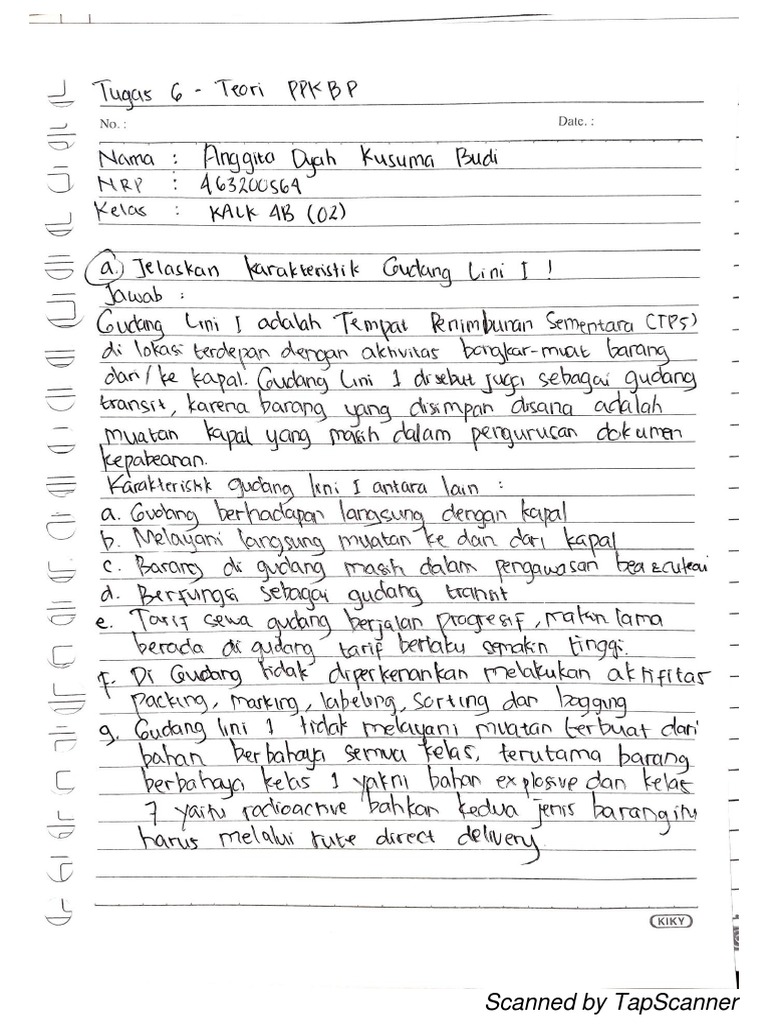 Tugas 6 - Teori PPKBP
No. :
Date. :
Nama : Anggita Dyah Kusuma Budi
NRP : 463200564
Kelas : KALK 4B (02)
a. Jelaskan karakteristik Gudang Lini I !
Jawab :
Gudang Lini I adalah Tempat Penimbunan Sementara (TPS)
di lokasi terdepan dengan aktivitas bongkar-muat barang
dari/ke kapal. Gudang Lini 1 disebut juga sebagai gudang
transit, karena barang yang disimpan disana adalah
muatan kapal yang masih dalam pengurusan dokumen
kepabeanan.
Karakteristik gudang lini I antara lain :
a. Gudang berhadapan langsung dengan kapal
b. Melayani langsung muatan ke dan dari kapal
c. Barang di gudang masih dalam pengawasan bea & cukai
d. Berfungsi sebagai gudang transit
e. Tarif sewa gudang berjalan progresif, makin lama
berada di gudang tarif berlaku semakin tinggi.
f. Di Gudang tidak diperkenankan melakukan aktifitas
packing, marking, labeling, sorting dan bagging
g. Gudang lini 1 tidak melayani muatan terbuat dari
bahan berbahaya semua kelas, terutama barang
berbahaya kelas 1 yakni bahan explosive dan kelas
7 yaitu radioactive bahkan kedua jenis barang itu
harus melalui rute direct delivery
KIKY
Scanned by TapScanner